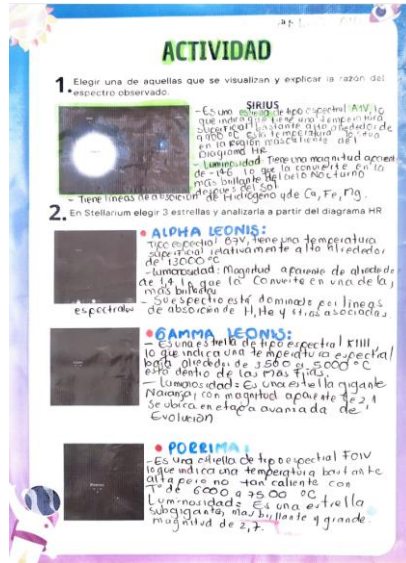 ACTIVIDAD
1. Elegir una de aquellas que se visualizan y explicar la razón del
espectro observado.
SIRIUS
- Es una estrella de tipo espectral A1V, lo
que indica que tiene una temperatura
superficial bastante alta alrededor de
9900 °C esta temperatura lo situa
en la región más caliente del
Diagrama HR
- Luminosidad: Tiene una magnitud apared
de -1.46 lo que la convierte en la
más brillante del cielo Nocturno
despues del sol.
- Tiene líneas de absorción de Hidrógeno y de Ca, Fe, Mg.
2. En Stellarium elegir 3 estrellas y analizarla a partir del diagrama HR
• ALPHA LEONIS:
Tipo espectral B7V, tiene una temperatura
superficial relativamente alta alrededor
de 13000 °C
- Lumonosidad: Magnitud aparente de alrededor
de 1,4 lo que la convierte en una de la,
más brillantes
- Su espectro está dominado por líneas
de absorción de H, He y
espectrales
• GAMMA LEONIS:
- Es una estrella de tipo espectral K1III,
lo que indica una temperatura espectral
baja alrededor de 3500 a 5000 °C
esta dentro de las más frías.
- Luminosidad: Es una estrella gigante
Naranja, con magnitud aparente de 2,1
se ubica en etapa avanzada de
Evolución
• PORRIMA:
- Es una estrella de tipo espectral F0IV
lo que indica una temperatura bastante
alta pero no tan caliente con
T° de 6000 a 7500 °C
Luminosidad: Es una estrella
subgigante, mas brillante y grande.
magnitud de 2,7.